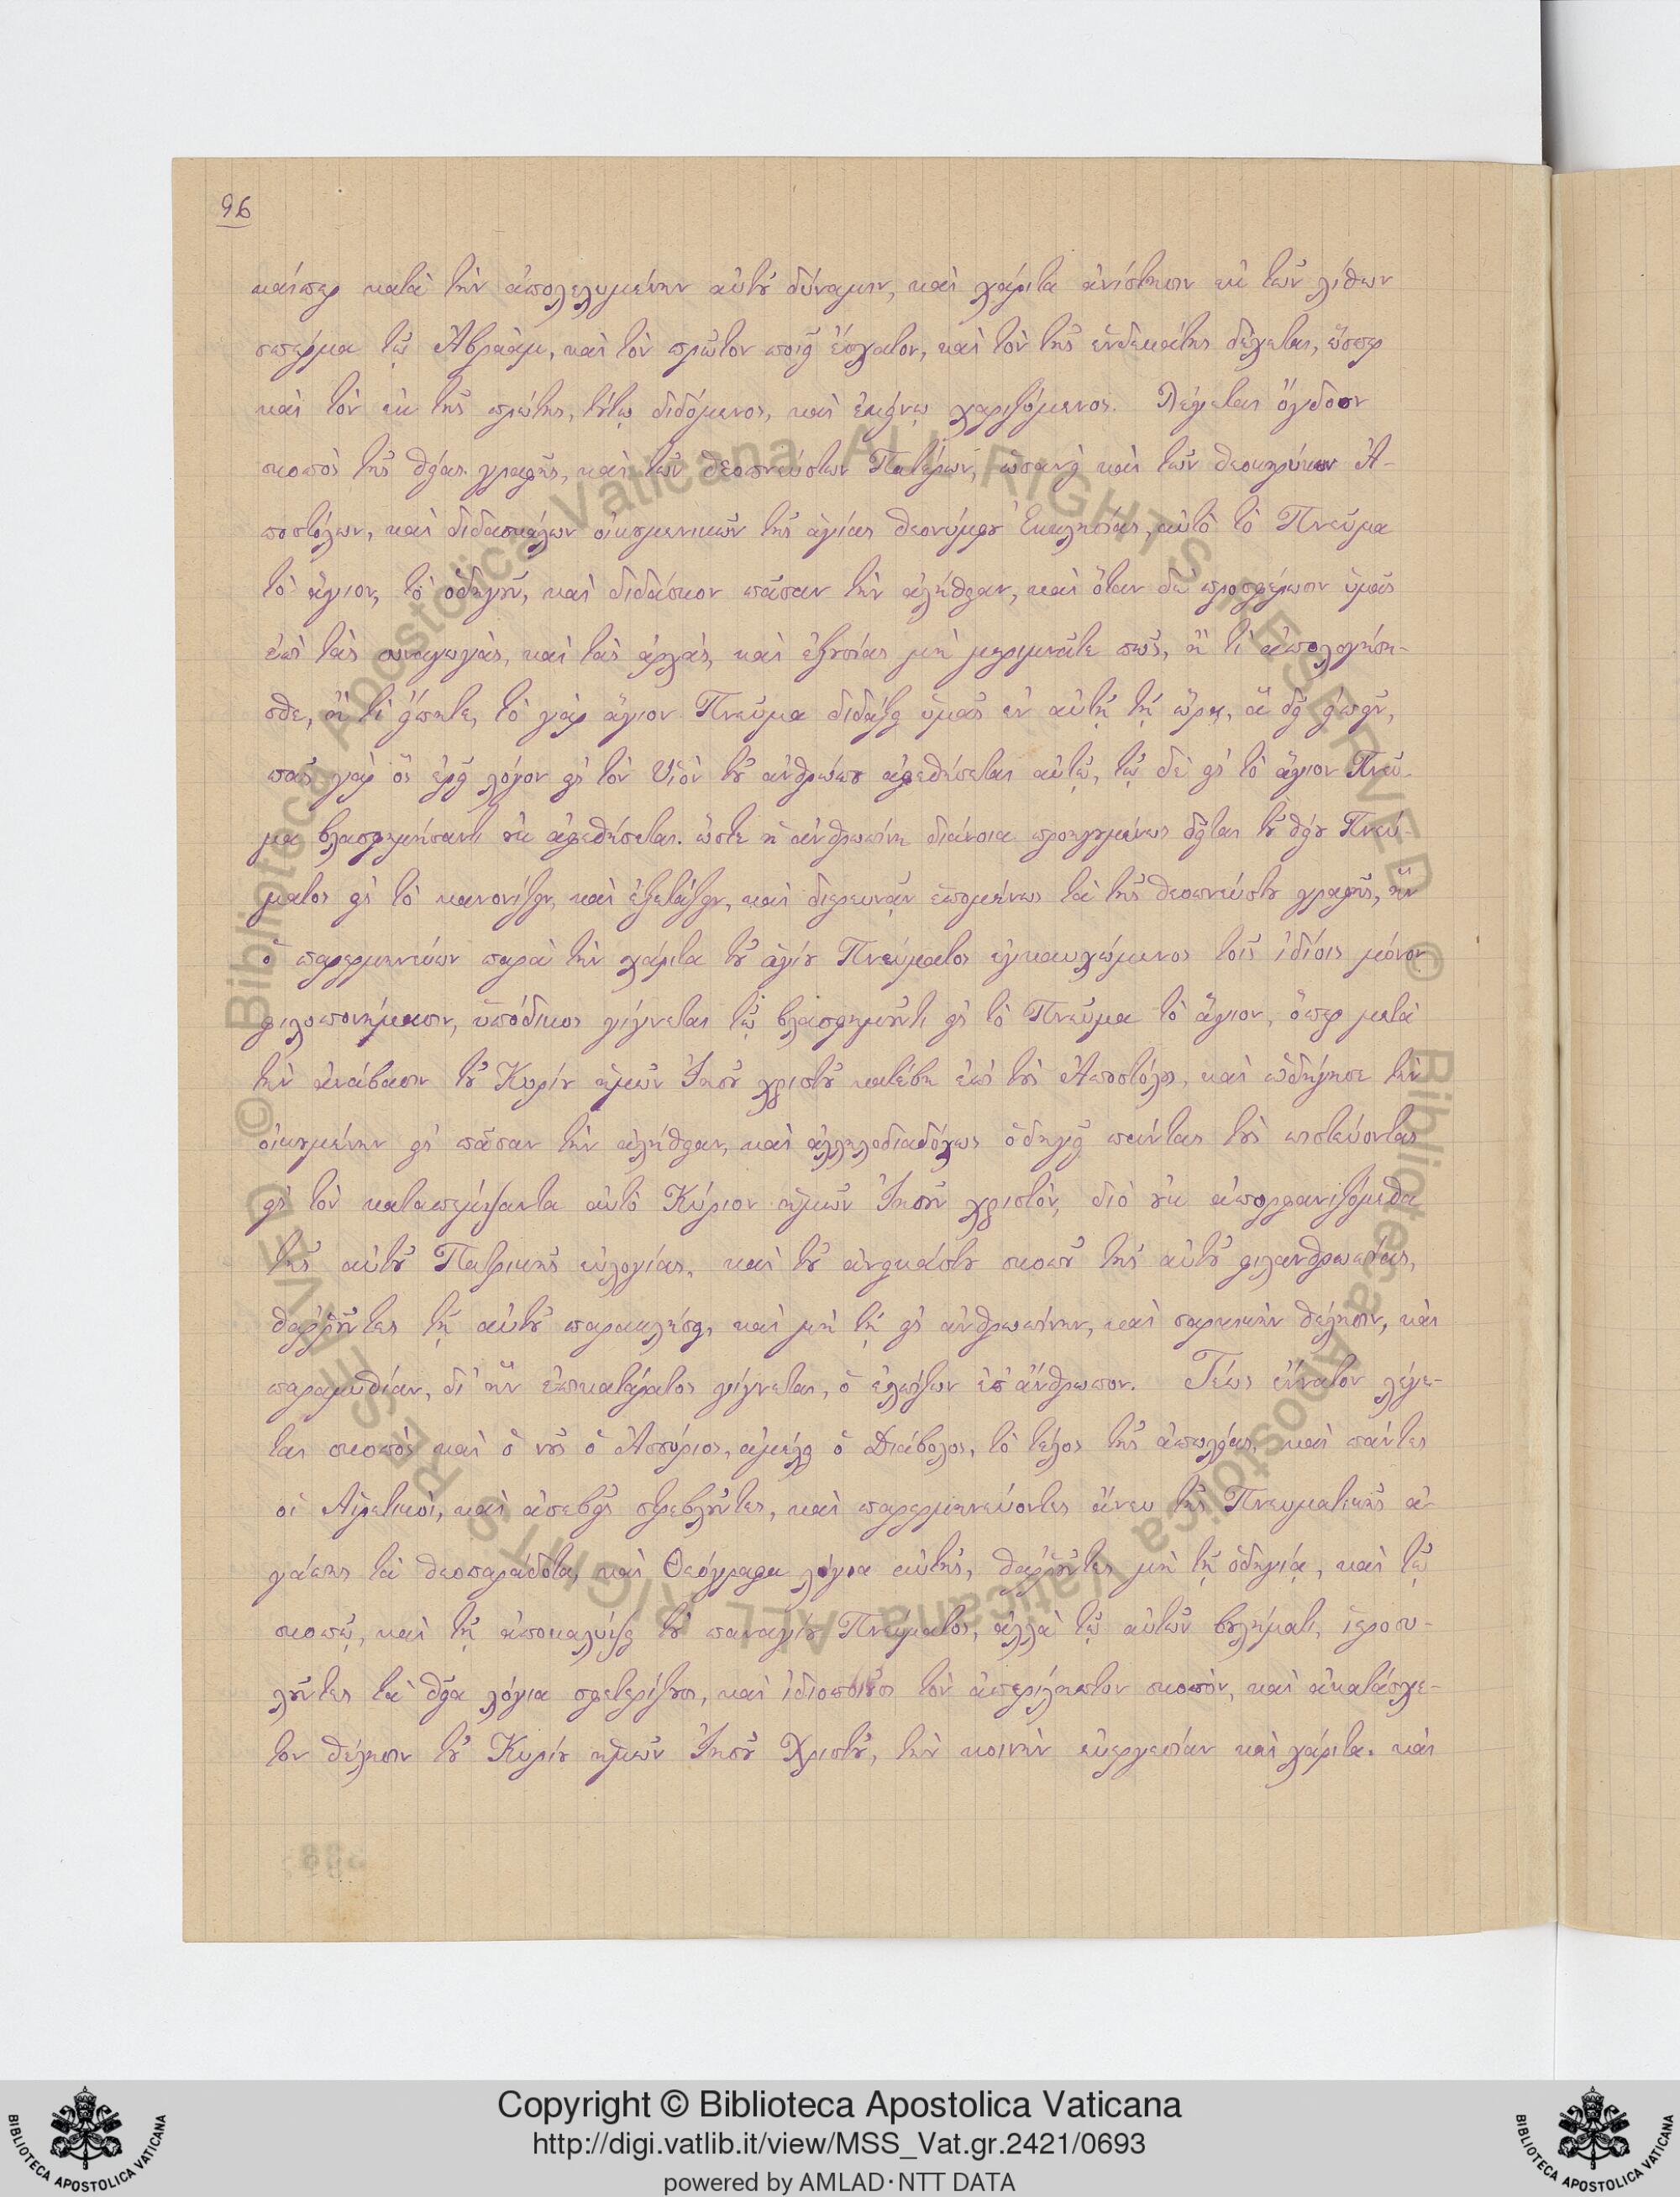 96
καίπερ κατὰ τὴν ἀπολελυμένην αὐτοῦ δύναμιν, καὶ χάριτα ἀνίστησιν ἐκ τῶν λίθων
σπέρμα τῷ Ἀβραὰμ, καὶ τὸν πρῶτον ποιεῖ ἔσχατον, καὶ τὸν τῆς ἑνδεκάτης δέχεται, ὥσπερ
καὶ τὸν ἐκ τῆς πρώτης, τούτῳ διδόμενος, καὶ ἐκείνῳ χαριζόμενος. Λέγεται ὄγδοον
σκοπὸς τῆς θείας γραφῆς, καὶ τῶν θεοπνεύστων Πατέρων, ὡσανεὶ καὶ τῶν θεοκηρύκων Ἀ-
ποστόλων, καὶ διδασκάλων οἰκουμενικῶν τῆς ἁγίας θεονύμφου Ἐκκλησίας, αὐτὸ τὸ Πνεῦμα
τὸ ἅγιον, τὸ ὁδηγοῦν, καὶ διδάσκον πᾶσαν τὴν ἀλήθειαν, καὶ ὅταν δὲ προσφέρωσιν ὑμᾶς
ἐπὶ τὰς συναγωγὰς, καὶ τὰς ἀρχὰς, καὶ ἐξουσίας μὴ μεριμνᾶτε πῶς, ἢ τὶ ἀπολογήση-
σθε, ἢ τὶ εἴπητε, τὸ γὰρ ἅγιον Πνεῦμα διδάξει ὑμᾶς ἐν αὐτῇ τῇ ὥρᾳ, ἃ δεῖ εἰπεῖν,
πᾶς γὰρ ὃς ἐρεῖ λόγον εἰς τὸν Υἱὸν τοῦ ἀνθρώπου ἀφεθήσεται αὐτῷ, τῷ δὲ εἰς τὸ ἅγιον Πνεῦ-
μα βλασφημήσαντι οὐκ ἀφεθήσεται. ὥστε ἡ ἀνθρωπίνη διάνοια προηγουμένως δεῖται τοῦ θείου Πνεύ-
ματος εἰς τὸ κανονίζειν, καὶ ἐξετάζειν, καὶ διερευνᾷν ἑπομένως τὰ τῆς θεοπνεύστου γραφῆς, ἣν
ὁ παρερμηνεύων παρὰ τὴν χάριτα τοῦ ἁγίου Πνεύματος ἐγκαυχώμενος τοῖς ἰδίοις μόνον
φιλοπονήμασιν, ὑπόδικος γίγνεται τῷ βλασφημοῦντι εἰς τὸ Πνεῦμα τὸ ἅγιον, ὅπερ μετὰ
τὴν ἀνάβασιν τοῦ Κυρίου ἡμῶν Ἰησοῦ χριστοῦ κατέβη ἐπὶ τοὺς Ἀποστόλους, καὶ ὡδήγησε τὴν
οἰκουμένην εἰς πᾶσαν τὴν ἀλήθειαν, καὶ ἀλληλοδιαδόχως ὁδηγεῖ πάντας τοὺς πιστεύοντας
εἰς τὸν καταπέμψαντα αὐτὸ Κύριον ἡμῶν Ἰησοῦν χριστὸν, διὸ οὐκ ἀπορφανιζόμεθα
τῆς αὐτοῦ Πατρικῆς εὐλογίας, καὶ τοῦ ἀνεικάστου σκοποῦ τῆς αὐτοῦ φιλανθρωπίας,
θαῤῥοῦντες τῇ αὐτοῦ παρακλήσει, καὶ μὴ τῇ εἰς ἀνθρωπίνην, καὶ σαρκικὴν θέλησιν, καὶ
παραμυθίαν, δι' ἣν ἐπικατάρατος γίγνεται, ὁ ἐλπίζων ἐπ' ἄνθρωπον. Τέως ἔννατον λέγε-
ται σκοπὸς καὶ ὁ νοῦς ὁ Ἀσσύριος, ἀμέλει ὁ Διάβολος, τὸ τέλος τῆς ἀπωλείας, καὶ πάντες
οἱ Αἱρετικοὶ, καὶ ἀσεβεῖς στρεβλοῦντες, καὶ παρερμηνεύοντες ἄνευ τῆς Πνευματικῆς ἀ-
γάπης τὰ θεοπαράδοτα, καὶ Θεόγραφα λόγια αὐτῆς, θαῤῥοῦντες μὴ τῇ ὁδηγίᾳ, καὶ τῷ
σκοπῷ, καὶ τῇ ἀποκαλύψει τοῦ παναγίου Πνεύματος, ἀλλὰ τῷ αὐτῶν βουλήματι, ἱεροσυ-
λοῦντες τὰ θεῖα λόγια σφετερίζουσι, καὶ ἰδιοποιοῦσι τὸν ἀπερίληπτον σκοπὸν, καὶ ἀκατάσχε-
τον θέλησιν τοῦ Κυρίου ἡμῶν Ἰησοῦ Χριστοῦ, τὴν κοινὴν εὐεργεσίαν καὶ χάριτα. καὶ
© Biblioteca Apostolica Vaticana ALL RIGHTS RESERVED
© Biblioteca Apostolica Vaticana ALL RIGHTS RESERVED
Copyright © Biblioteca Apostolica Vaticana
http://digi.vatlib.it/view/MSS_Vat.gr.2421/0693
powered by AMLAD·NTT DATA
BIBLIOTECA APOSTOLICA VATICANA
BIBLIOTECA APOSTOLICA VATICANA